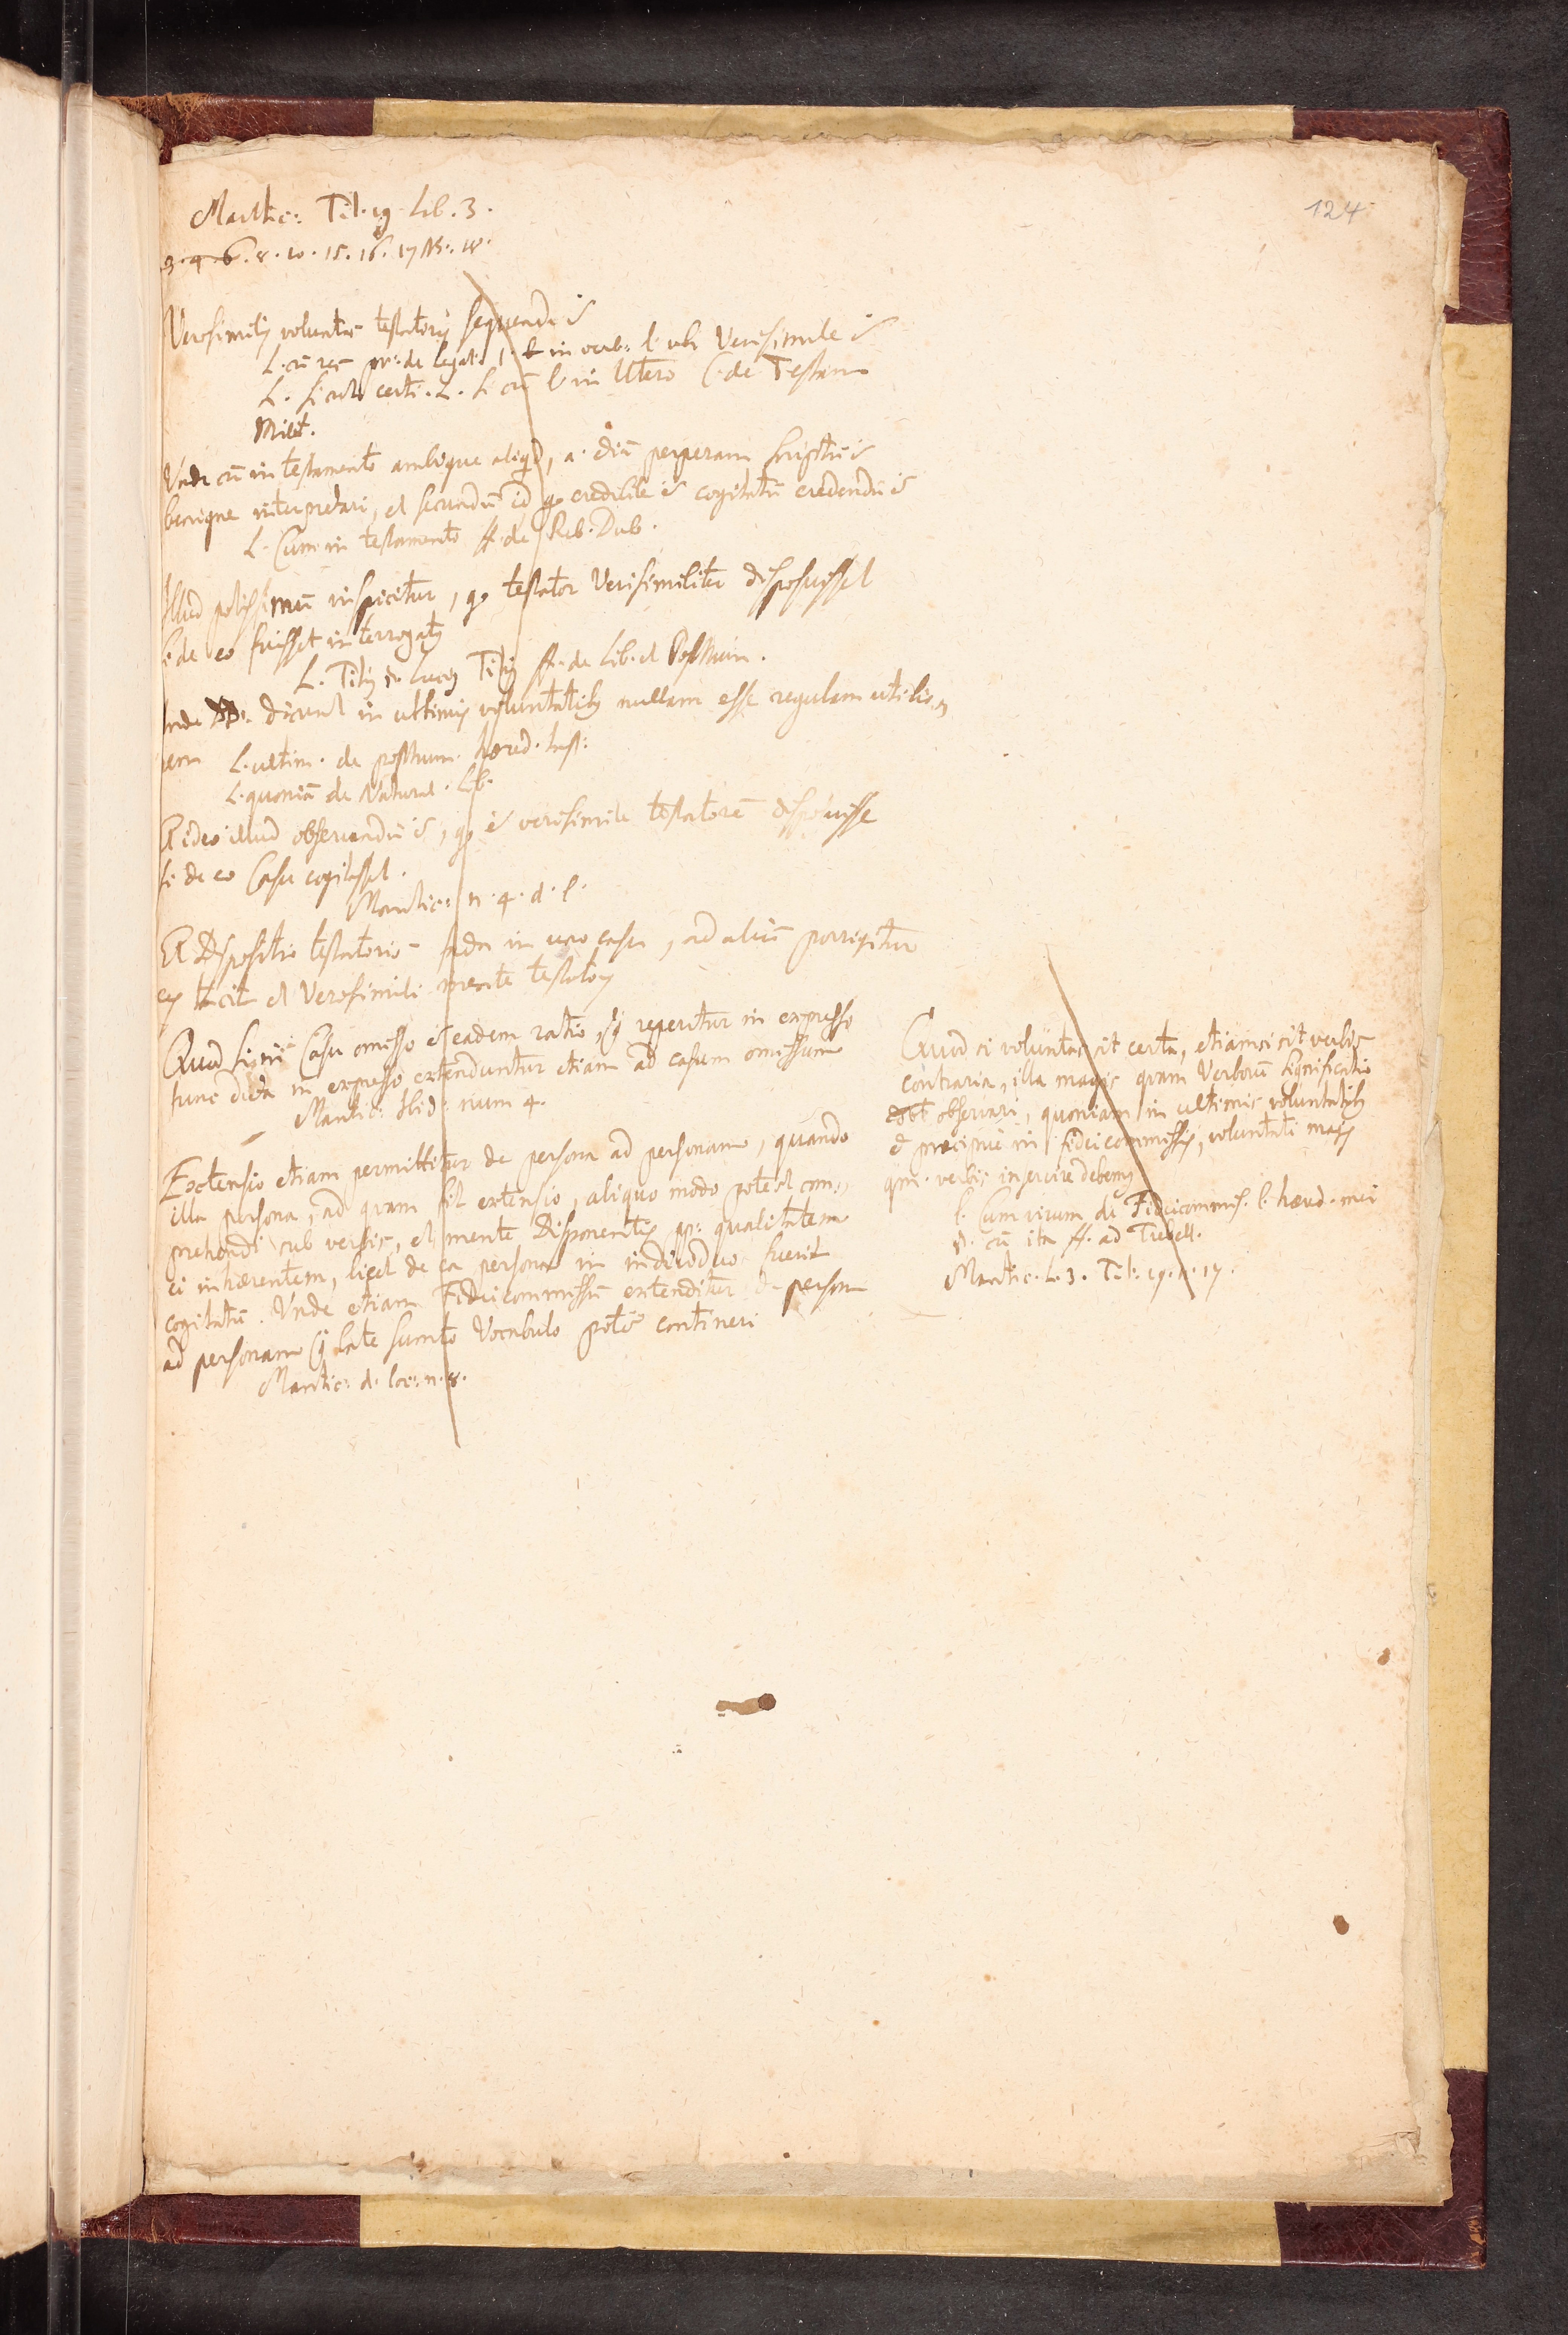 124
Mantic: Tit. 19. Lib. 3.
3. 4. 6. 8. 10. 15. 16. 17 NB. 18.
Verosimilis voluntas testatoris sequenda ē
L. cū pr: de legat. 1. in verb: l. ubi Verisimile ē
L. L. si cū l. in Utero C. de Testam
Milit.
Unde cū in testamento ambigue aliqd, a. diā perperam scriptū ē
benigne interpretari, et secundū id qo credibile ē cogitatū credendū ē
L. Cum in testamento ff. de Reb. Dub.
Illud potissimū inspicitur, qo testator Verisimiliter disposuisset
si de eo fuisset interrogatꝫ
L. Titiꝫ §. Luciꝫ Titiꝫ ff. de Lib. et Posthum.
Inde DD. dicunt in ultimis voluntatibꝫ nullam esse regulam utilio-
rem L. ultim. de posthum. hæred. Inst:
L. quoniā de Natural. Lib.
Et ideo illud observandū ē, qo ē verisimile testatorē disposuisse
si de eo Casu cogitasset.
Mantic: n. 4. d. l.
Et Dispositio testatoris facta in uno casu, ad aliū porrigitur
ex tacit et Verosimili mente testatoris
Quod si in Casu omisso ē eadem ratio, q reperitur in expresso
tunc dicta in expresso extenduntur etiam ad casum omissum
Mantic: Ibid: num 4.
Extensio etiam permittitur de persona ad personam, quando
illa persona, ad quam fit extensio, aliquo modo potest com:
prehendi sub verbis, et mente Disponentis pp: qualitatem
ei inhærentem, licet de ea persona in individuo fuerit
cogitatū. Unde etiam Fideicommissū extenditur de persona
ad personam q late sumto Vocabulo potē contineri
Mantic: d. loc: n. 8.
Quod si voluntas sit certa, etiamsi sit verbis
contraria, illa magis quam Verborū Significatio
debt observari, quoniam in ultimis voluntatibꝫ
et præcipue in fideicommissis, voluntati magis
qm. verbis inservire debemꝫ
l. Cum virum de Fideicommis. l. hæred. mei
§. cū ita ff. ad Trebell.
Mantic. L. 3. Tit. 19. n. 17.